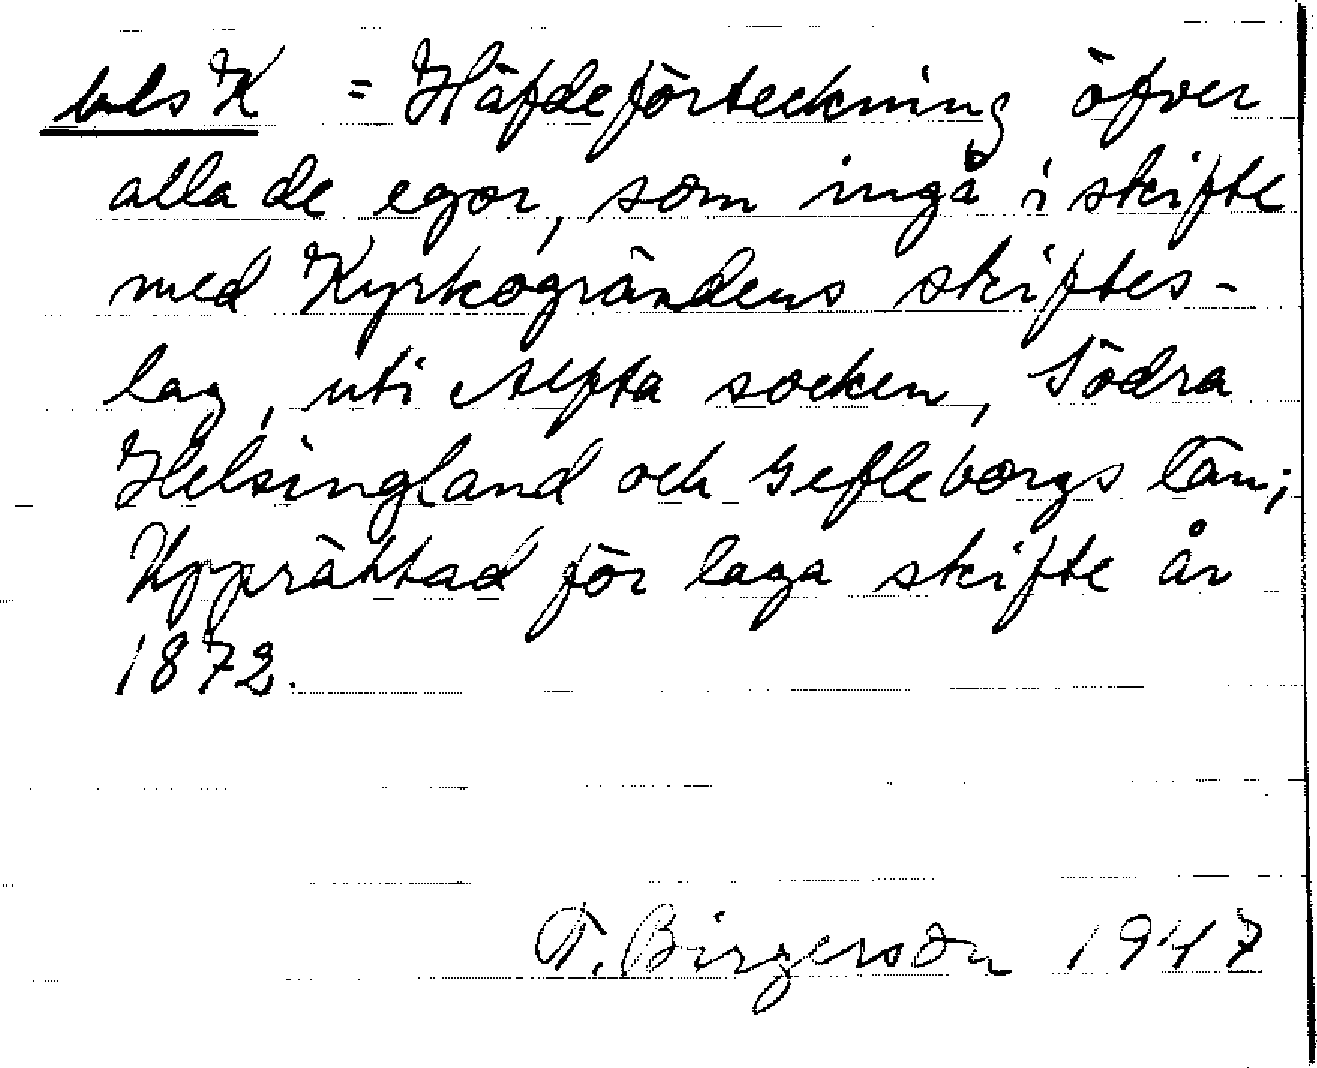 bls K = Häfdeförteckning öfver
alla de egor, som ingå i skifte
med Kyrkogrändens skiftes-
lag, uti Alfta socken, Södra
Helsingland och Gefleborgs län;
Upprättad för laga skifte år
1872.
T. Birgerson 1947